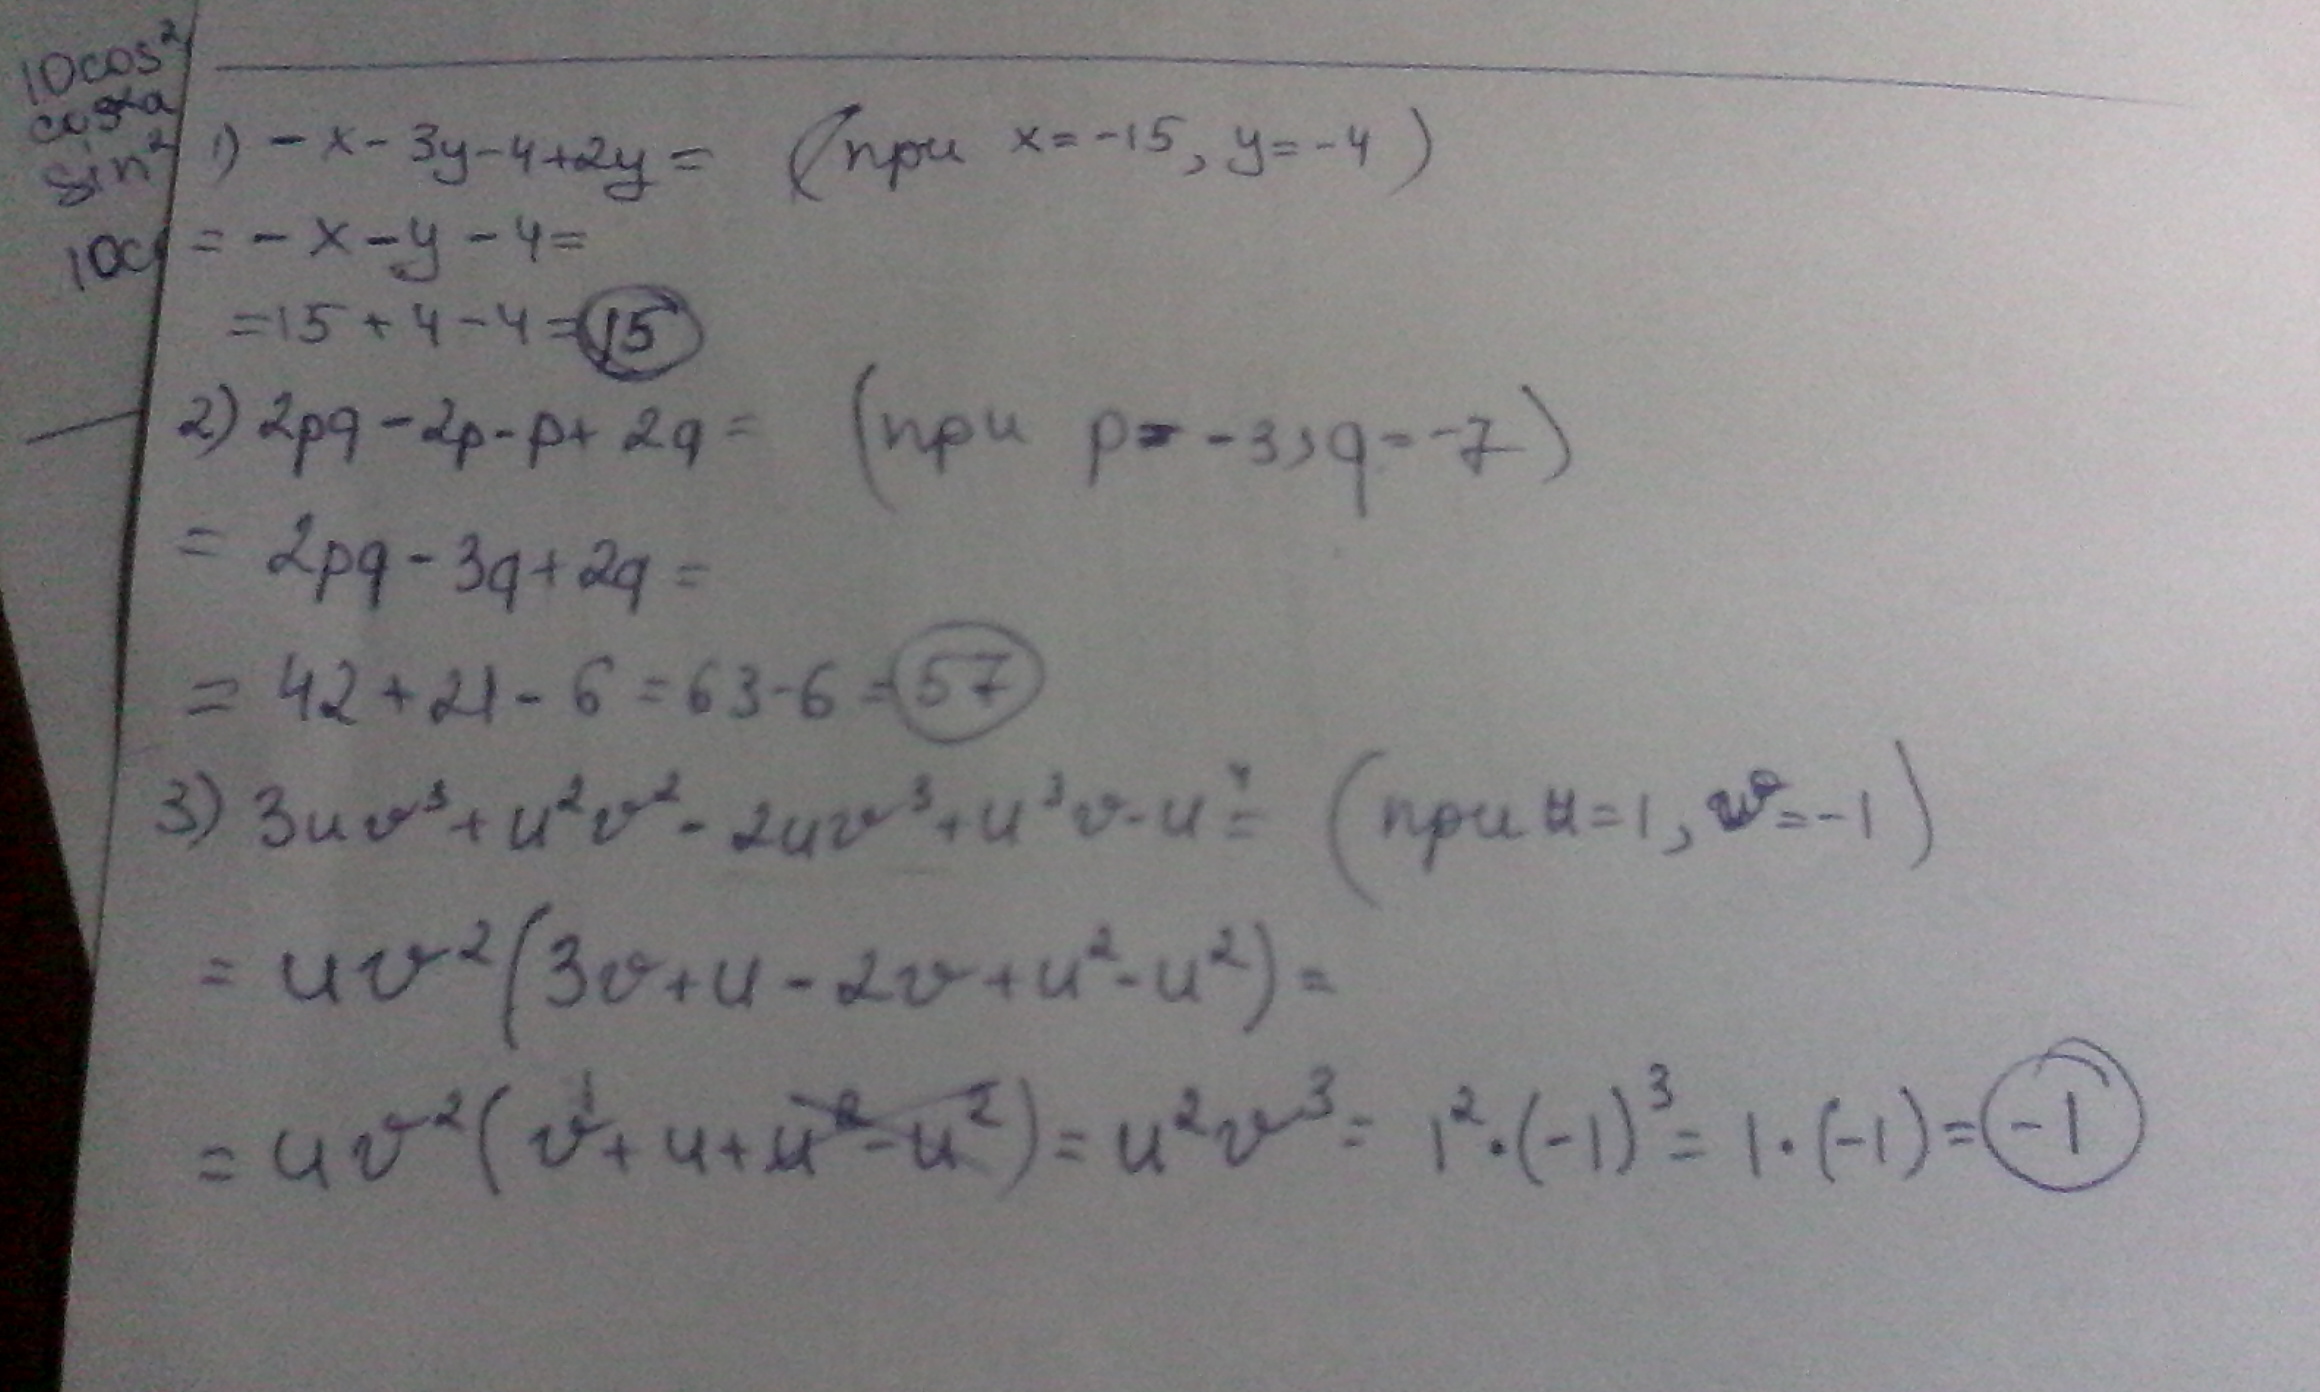 10cos²
cos²a
sin²
10c
1) -x-3y-4+2y= (при x=-15, y=-4)
= -x-y-4=
=15+4-4=15
2) 2pq-2p-p+2q= (при p=-3, q=-7)
= 2pq-3q+2q=
= 42+21-6=63-6=57
3) 3uv³+u²v²-2uv³+u³v-u⁴= (при u=1, v=-1)
= uv²(3v+u-2v+u²-u²)=
= uv²(v+u+u²-u²)=u²v³= 1²·(-1)³=1·(-1)=-1